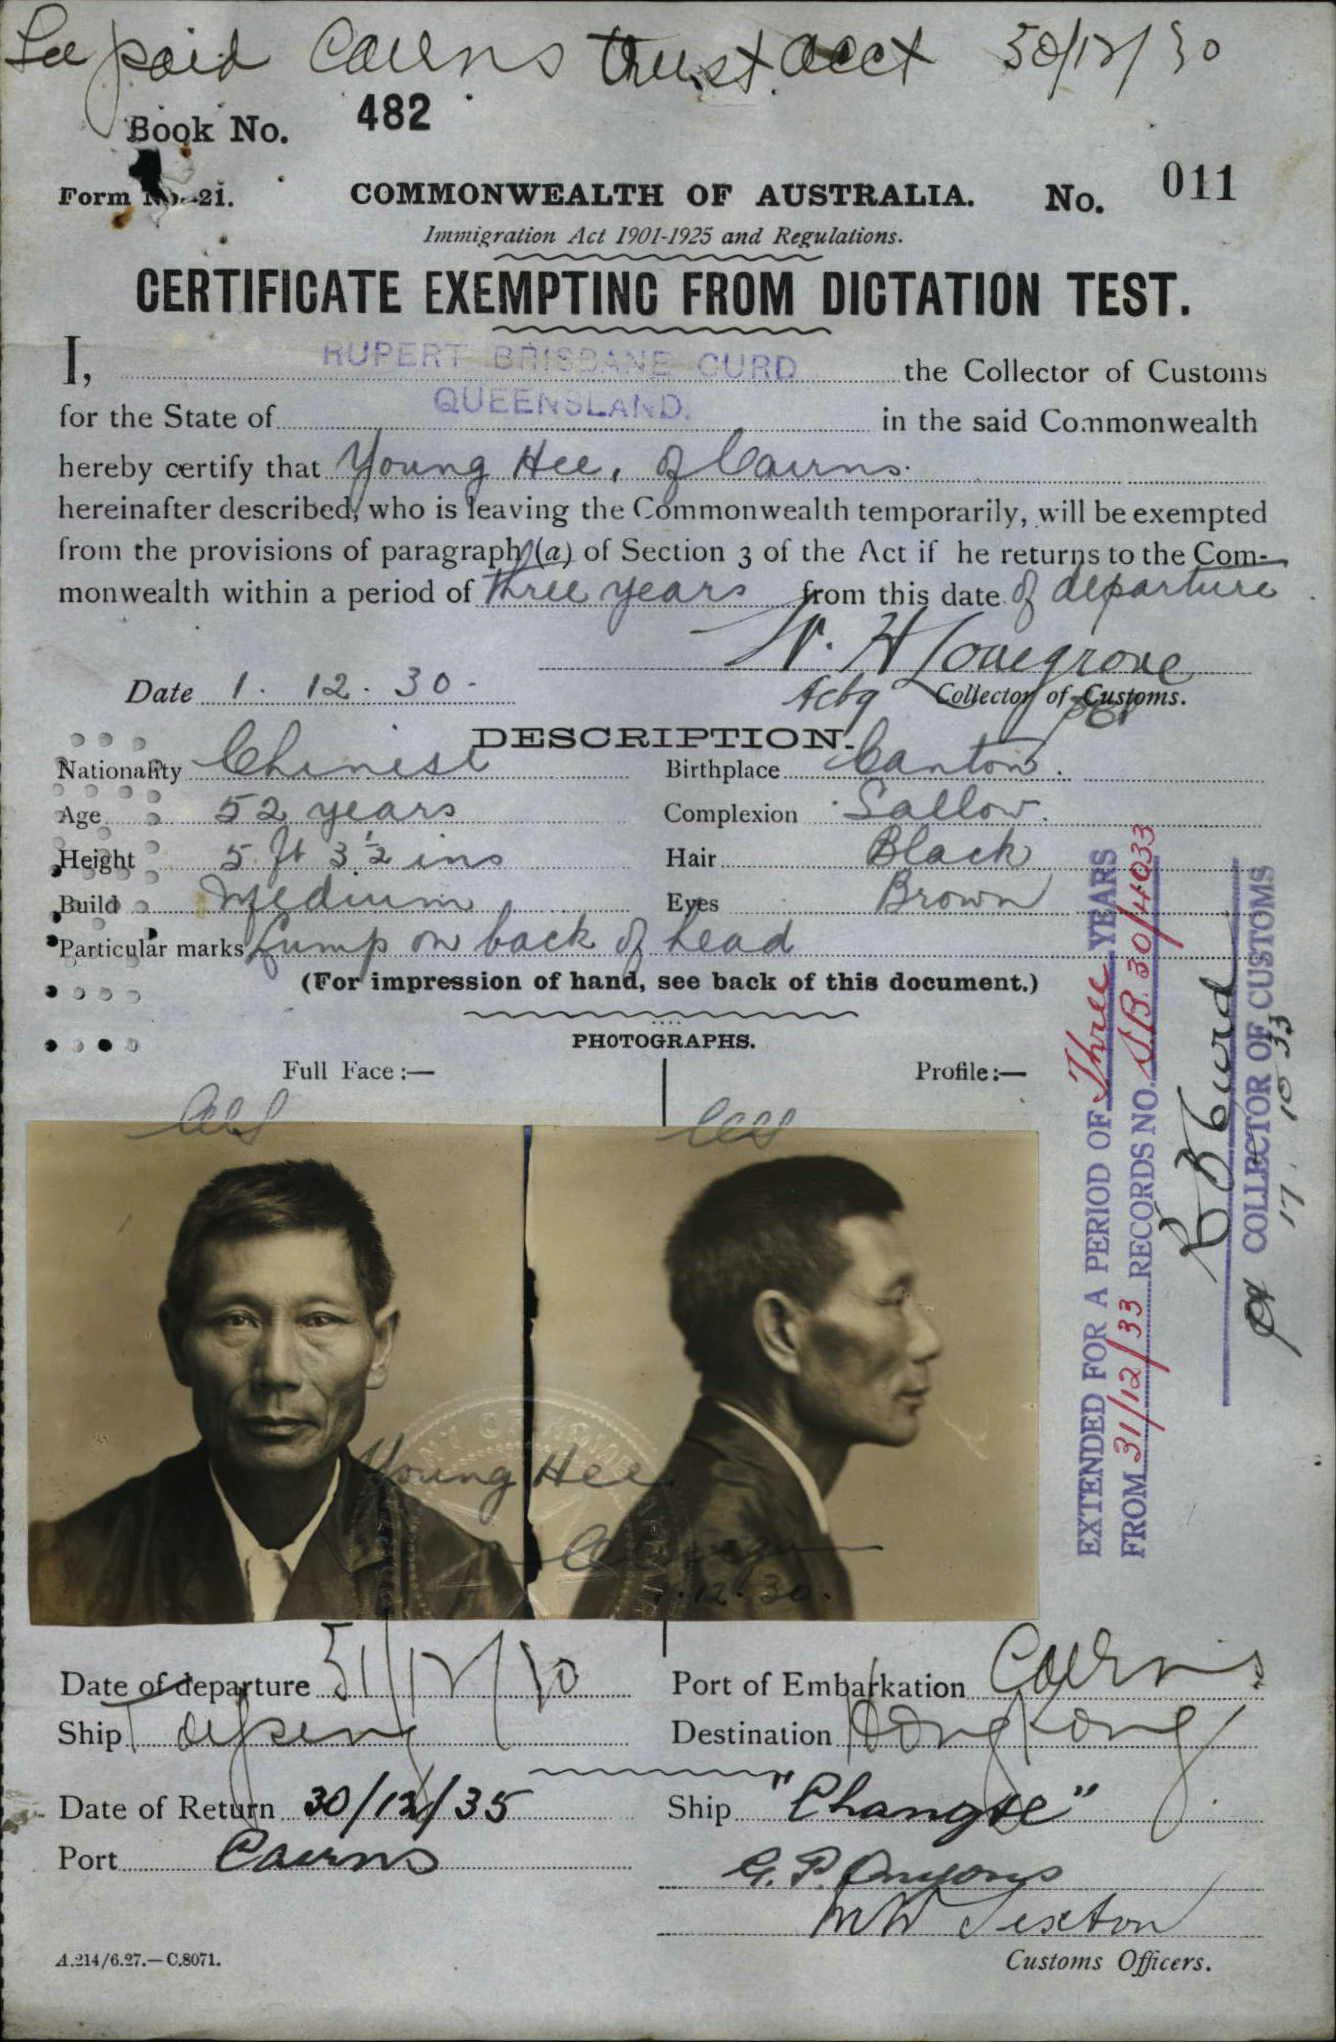 Fee paid Cairns trust acct 30/12/30
Book No. 482
Form No. 21. COMMONWEALTH OF AUSTRALIA. No. 011
Immigration Act 1901-1925 and Regulations.
CERTIFICATE EXEMPTING FROM DICTATION TEST.
I, RUPERT BRISBANE CURD the Collector of Customs
for the State of QUEENSLAND. in the said Commonwealth
hereby certify that Young Hee, of Cairns.
hereinafter described, who is leaving the Commonwealth temporarily, will be exempted
from the provisions of paragraph (a) of Section 3 of the Act if he returns to the Com-
monwealth within a period of three years from this date of departure
W. H Lovegrove
Date 1. 12. 30. Actg Collector of Customs.
per
DESCRIPTION.
Nationality Chinese Birthplace Canton.
Age 52 years Complexion Sallow.
Height 5 ft 3½ ins Hair Black
Build Medium Eyes Brown
Particular marks Lump on back of head
(For impression of hand, see back of this document.)
PHOTOGRAPHS.
Full Face:— Profile:—
Young Hee
Cairns
1.12.30.
EXTENDED FOR A PERIOD OF Three YEARS
FROM 31/12/33 RECORDS NO. S.B. 30/4033
R B Curd
COLLECTOR OF CUSTOMS
17. 10 33
Date of departure 31/12/30 Port of Embarkation Cairns
Ship Taiping Destination Hong Kong
Date of Return 30/12/35 Ship "Changte"
Port Cairns
G. P.
MW Sexton
A.214/6.27.—C.8071. Customs Officers.